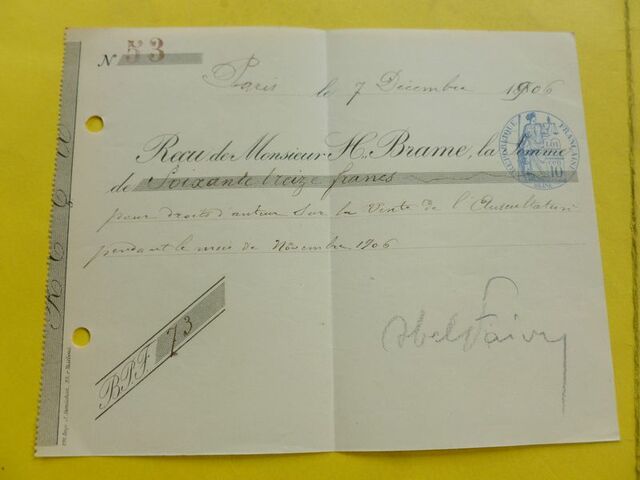 N 53
Paris le 7 Décembre 1906
Reçu de Monsieur H. Brame, la Somme
de Soixante treize francs
pour droits d'auteur sur la Vente de l'Auscultation
pendant le mois de Novembre 1906
RÉPUBLIQUE FRANÇAISE
10
SEINE
B.P.F. 73
Abel Faivre
REÇU